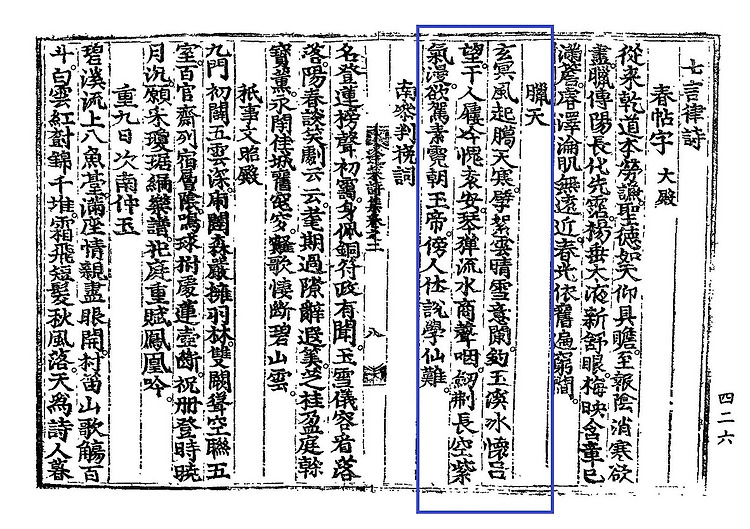 七言律詩
春帖字 大殿
從來乾道本勞謙聖德如天仰具瞻至報陰消寒欲
盡臘傳陽長代先霑楊垂太液新舒眼梅映含章已
滿簷睿澤淪肌無遠近春光依舊遍窮閻
臘天
玄冥風起臘天寒擘絮雲晴雪意闌釣玉溪氷懷呂
望干人屨冷愧袁安琴彈流水商聲咽劒掣長空紫
氣漫欲駕素霓朝玉帝傍人休說學仙難
南參判挽詞
八
名登蓮榜聲初靄身佩銅符政有聞玉雪儀容看落
落陽春談笑劇云云耄期過隙辭遐筭芝桂盈庭餘
寶薰永閉佳城舊窀穸歌悽斷碧山雲
祇事文昭殿
九門初闢五雲深闥森嚴擁羽林雙闕聳空聯五
室百官齊列宿層陰鳴球拊慶蓮壺斷祝冊登時曉
月沉願采瓊琚編樂譜祀庭重賦鳳凰吟
重九日次南仲玉
碧漢流上八魚臺滿座情親盡眼開村笛山歌觴百
斗白雲紅樹錦千堆霜飛短髮秋風落天爲詩人暮
四二六